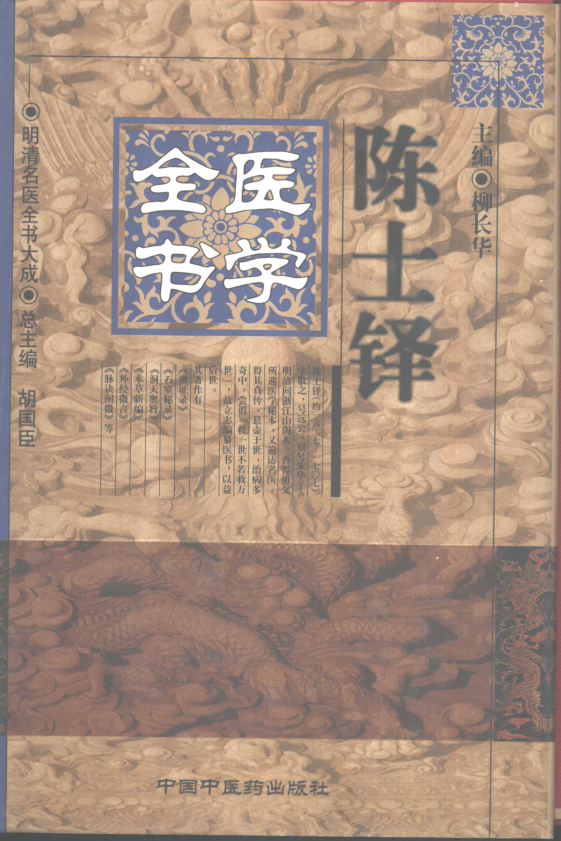 主编◎柳长华
陈士铎
医学
全书
陈士铎(约一六二七~一七〇七)
字敬之,号远公,别号朱华子,
明清间浙江山阴人。曾得祖父
所遗医学秘本,又遍访名医,
得其真传,悬壶于世,治病多
奇中。尝谓「救一世不若救万
世」,故立志编纂医书,以益
后世。
其著作有
《辨证录》
《石室秘录》
《洞天奥旨》
《本草新编》
《外经微言》
《脉诀阐微》等
◎明清名医全书大成◎总主编 胡国臣
中国中医药出版社